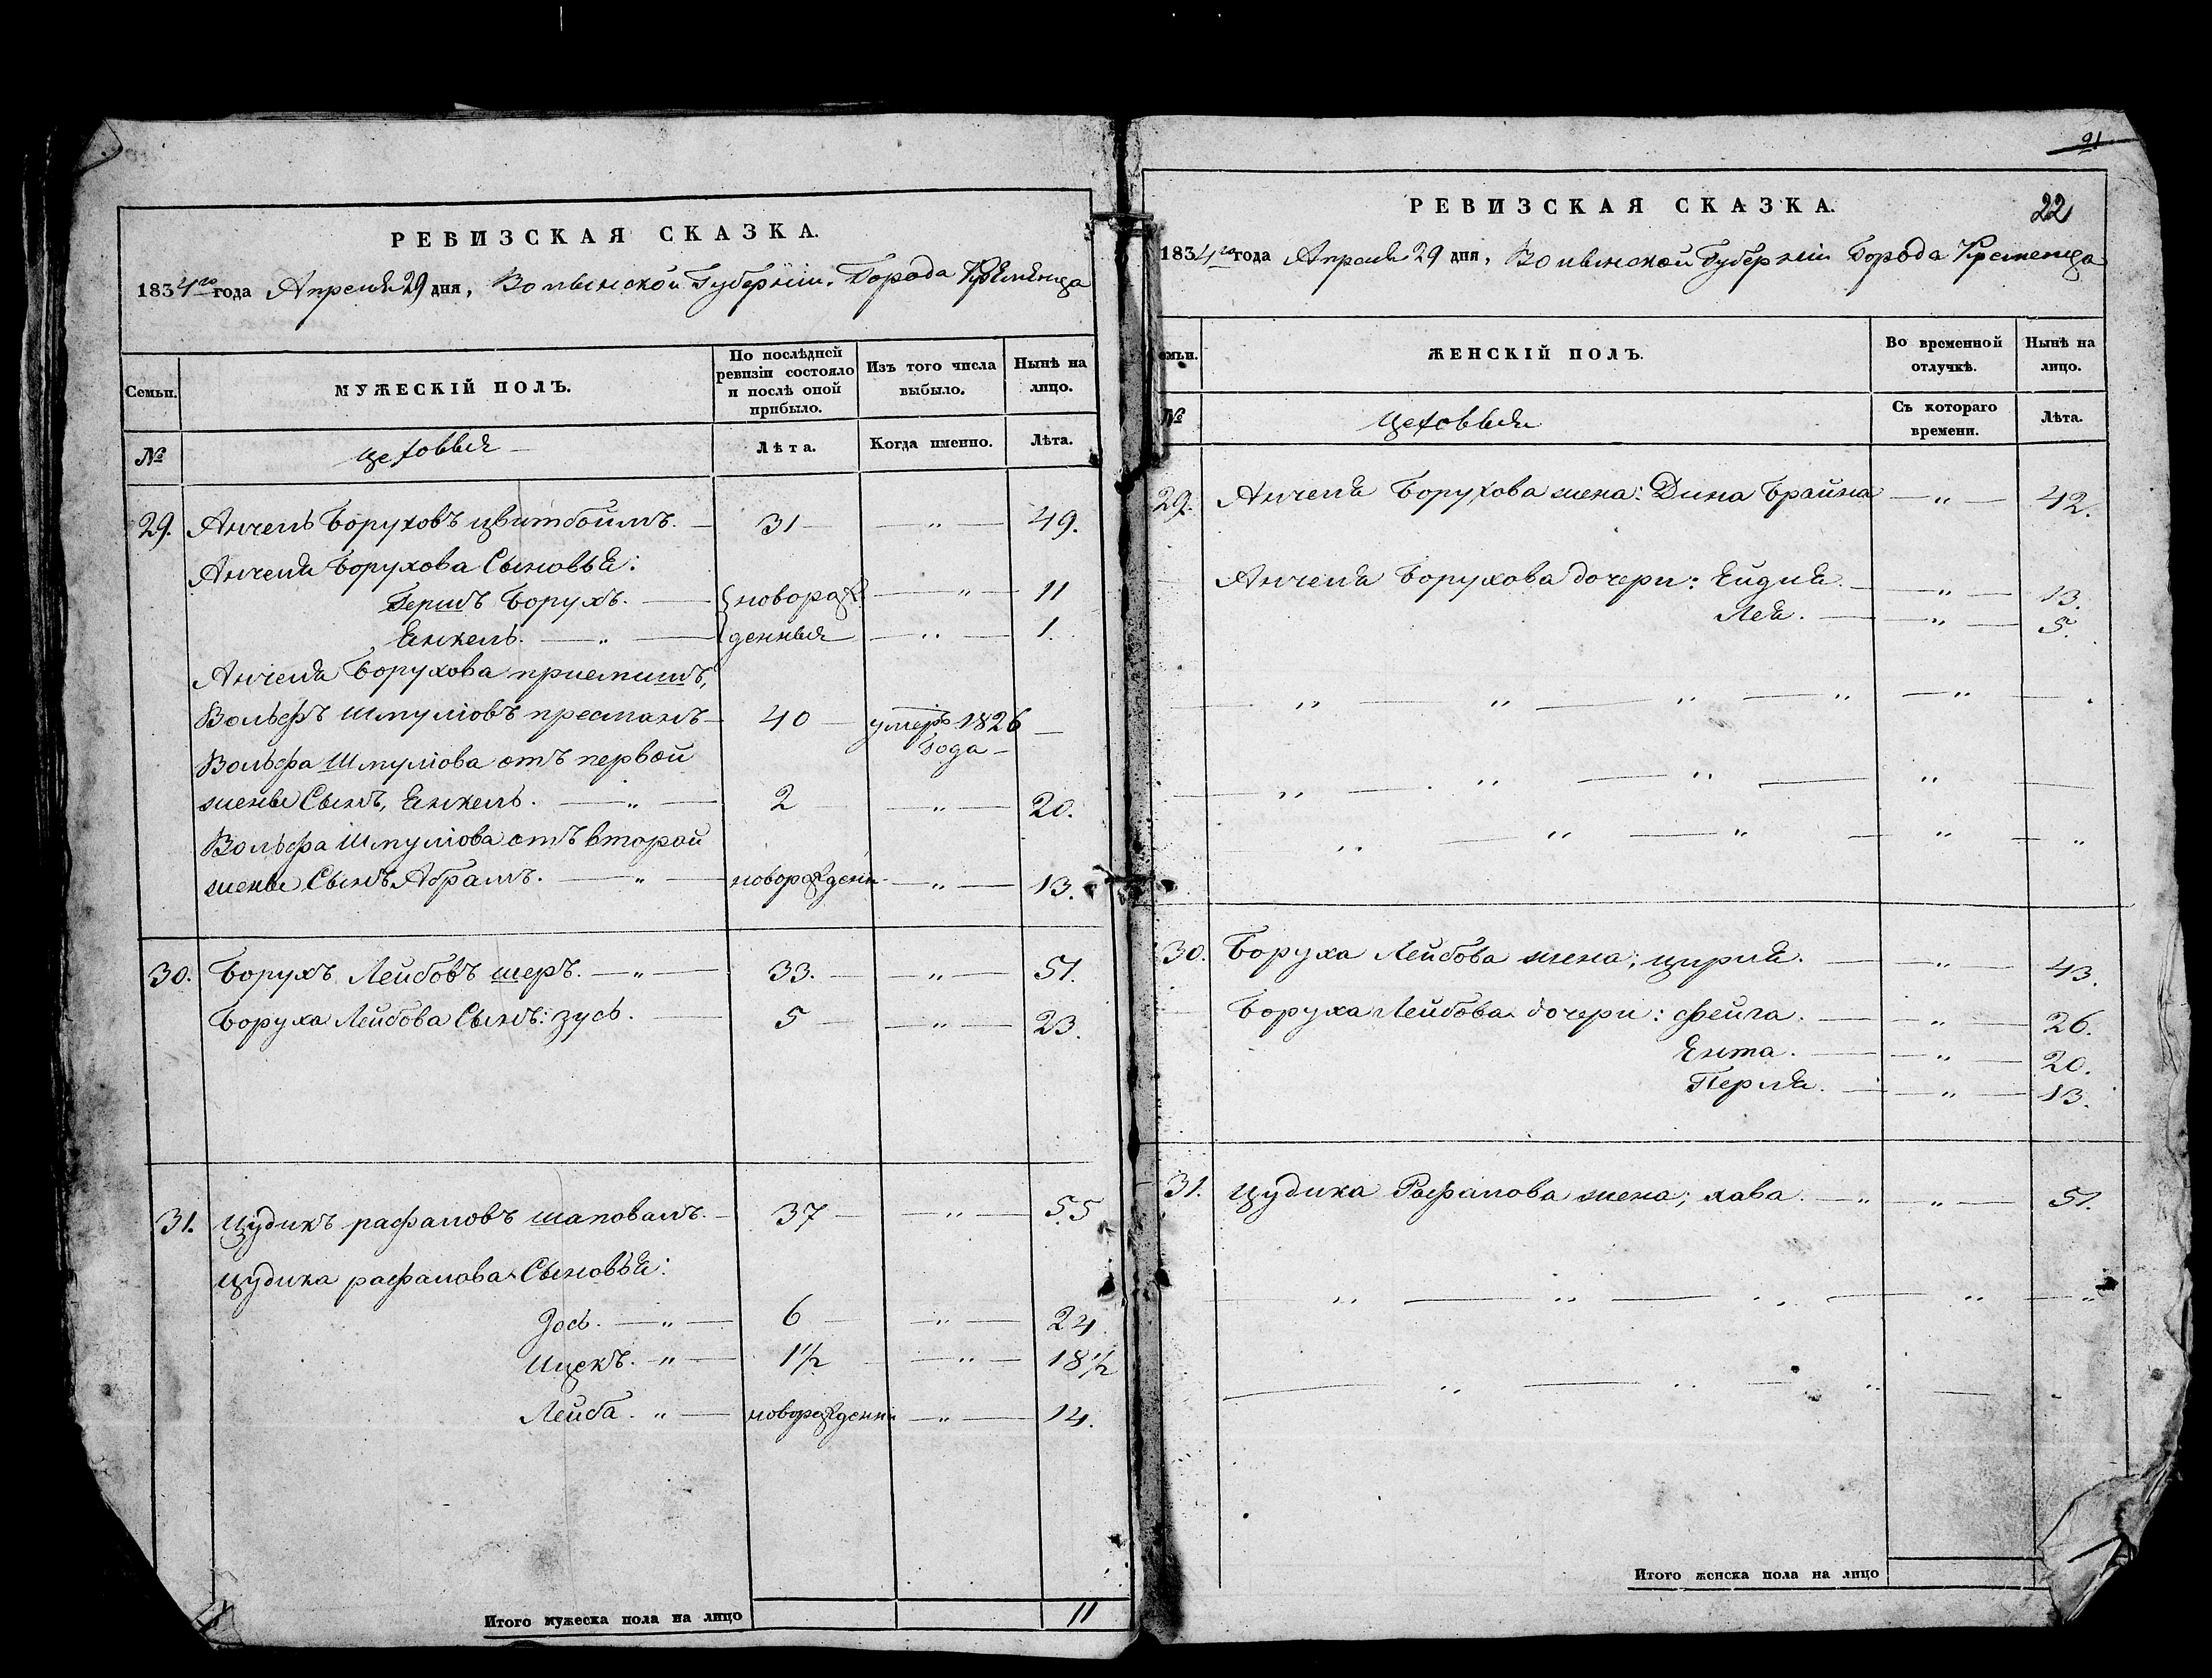 РЕВИЗСКАЯ СКАЗКА.
1834го года Апреля 29 дня, Волынской Губерніи. Города Кременца
Семьи.
МУЖЕСКІЙ ПОЛЪ.
По послѣдней ревизіи состояло и послѣ оной прибыло.
Изъ того числа выбыло.
Нынѣ на лицо.
№
цеховыя
Лѣта.
Когда именно.
Лѣта.
29. Анчель Боруховъ цвитбоимъ. — 31 — „ — 49.
Анчеля Борухова Сыновья:
Гершъ Борухъ. — { новораж — „ — 11
Енкель. — „ — { денныя — „ — 1.
Анчеля Борухова приемишъ,
Вольфъ Шмуліовъ пресманъ — 40 — умеръ 1826 —
Года —
Вольфа Шмуліова отъ первой
жены Сынъ, Енкель. — „ — 2 — „ — 20.
Вольфа Шмуліова отъ второй
жены Сынъ Абрамъ. — „ — новоражденн — „ — 13.
30. Борухъ Лейбовъ шеръ. — „ — 33. — „ — 51.
Боруха Лейбова Сынъ: зусь. — 5 — „ — 23.
31. Цудикъ рафаловъ шаповалъ. — 37 — „ — 55
Цудика рафалова Сыновья:
Іось. — „ — 6 — „ — 24.
Ицекъ. „ — 1½ — „ — 18½
Лейба. „ — новоражденн — „ — 14.
Итого мужеска пола на лицо 11
21
РЕВИЗСКАЯ СКАЗКА. 22
1834го года Апреля 29 дня, Волынской Губерніи Города Кременца
ЖЕНСКІЙ ПОЛЪ.
Во временной отлучкѣ.
Нынѣ на лицо.
№
Цеховыя
Съ котораго времени.
Лѣта.
29. Анчеля Борухова жена: Дина Брайна — „ — 42.
Анчеля Борухова дочери: Ейдля. — „ — 13.
Лея. — „ — 5.
30. Боруха Лейбова жена; цирля. — „ — 43.
Боруха Лейбова дочери: Фейга. — „ — 26.
Ента. — „ — 20.
Перля. — „ — 13.
31. Цудика Рафалова жена; хава. — „ — „ — 51.
Итого женска пола на лицо